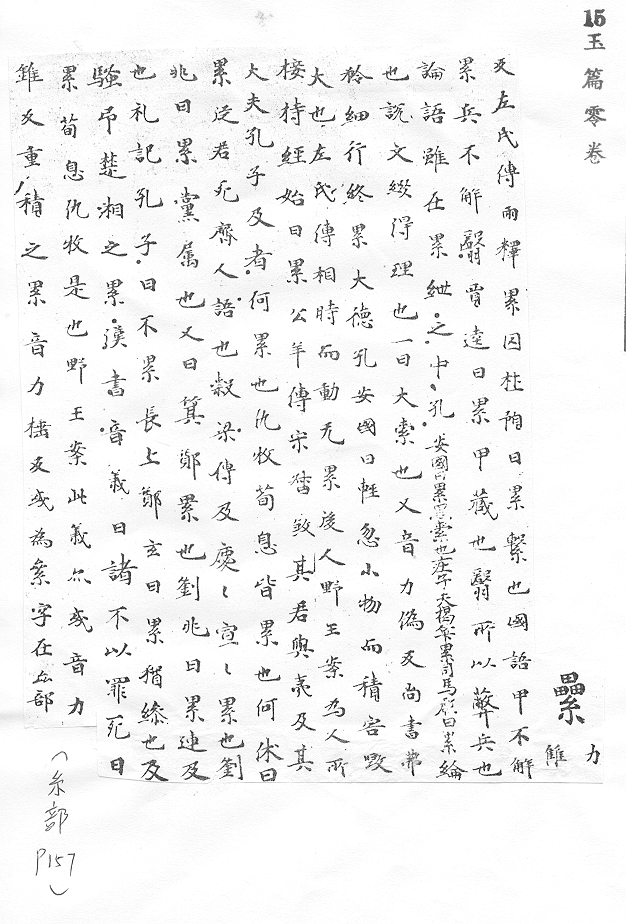 15
玉篇零卷
纍
力
雖
反左氏傳兩釋累囚杜預曰累繫也國語甲不解
累兵不解翳賈逵曰累甲藏也翳所以蔽兵也
論語雖在累紲之中孔安國曰累黑索也庄子夫揭竿累司馬彪曰累綸
也說文綴得理也一曰大索也又音力偽反尚書弗
矜細行終累大德孔安國曰輕忽小物而積害毀
大也左氏傳相時而動无累後人野王案為人所
接持經始曰累公羊傳宋督弒其君與夷及其
大夫孔子及者何累也仇牧荀息皆累也何休曰
累從君死齊人語也穀梁傳及處〻宣〻累也劉
兆曰累黨属也又曰箕鄭累也劉兆曰累連及
也礼記孔子曰不累長上鄭玄曰累猶縿也及
騷吊楚湘之累漢書音義曰諸不以罪死曰
累荀息仇牧是也野王案此義尓或音力
雖反重積之累音力捶反或為絫字在厽部
(糸部
P157)